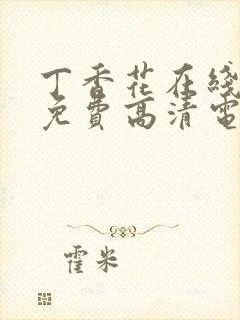 丁香花在线
免費高清電
霍米